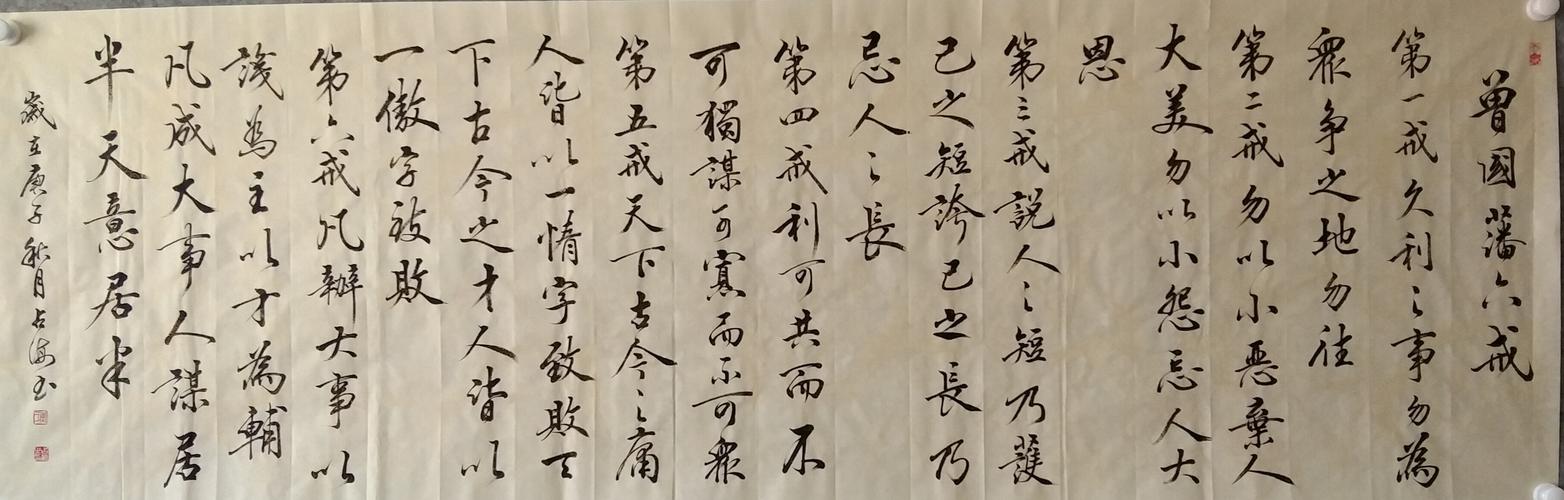 曾國藩六戒
第一戒久利之事勿為
衆争之地勿往
第二戒勿以小惡棄人
大美勿以小怨忘人大
恩
第三戒説人之短乃護
己之短誇己之長乃
忌人之長
第四戒利可共而不
可獨謀可寡而不可衆
第五戒天下古今之庸
人皆以一惰字致敗天
下古今之才人皆以
一傲字被敗
第六戒凡辦大事以
識為主以才為輔
凡成大事人謀居
半天意居半
歲在庚子秋月占海书